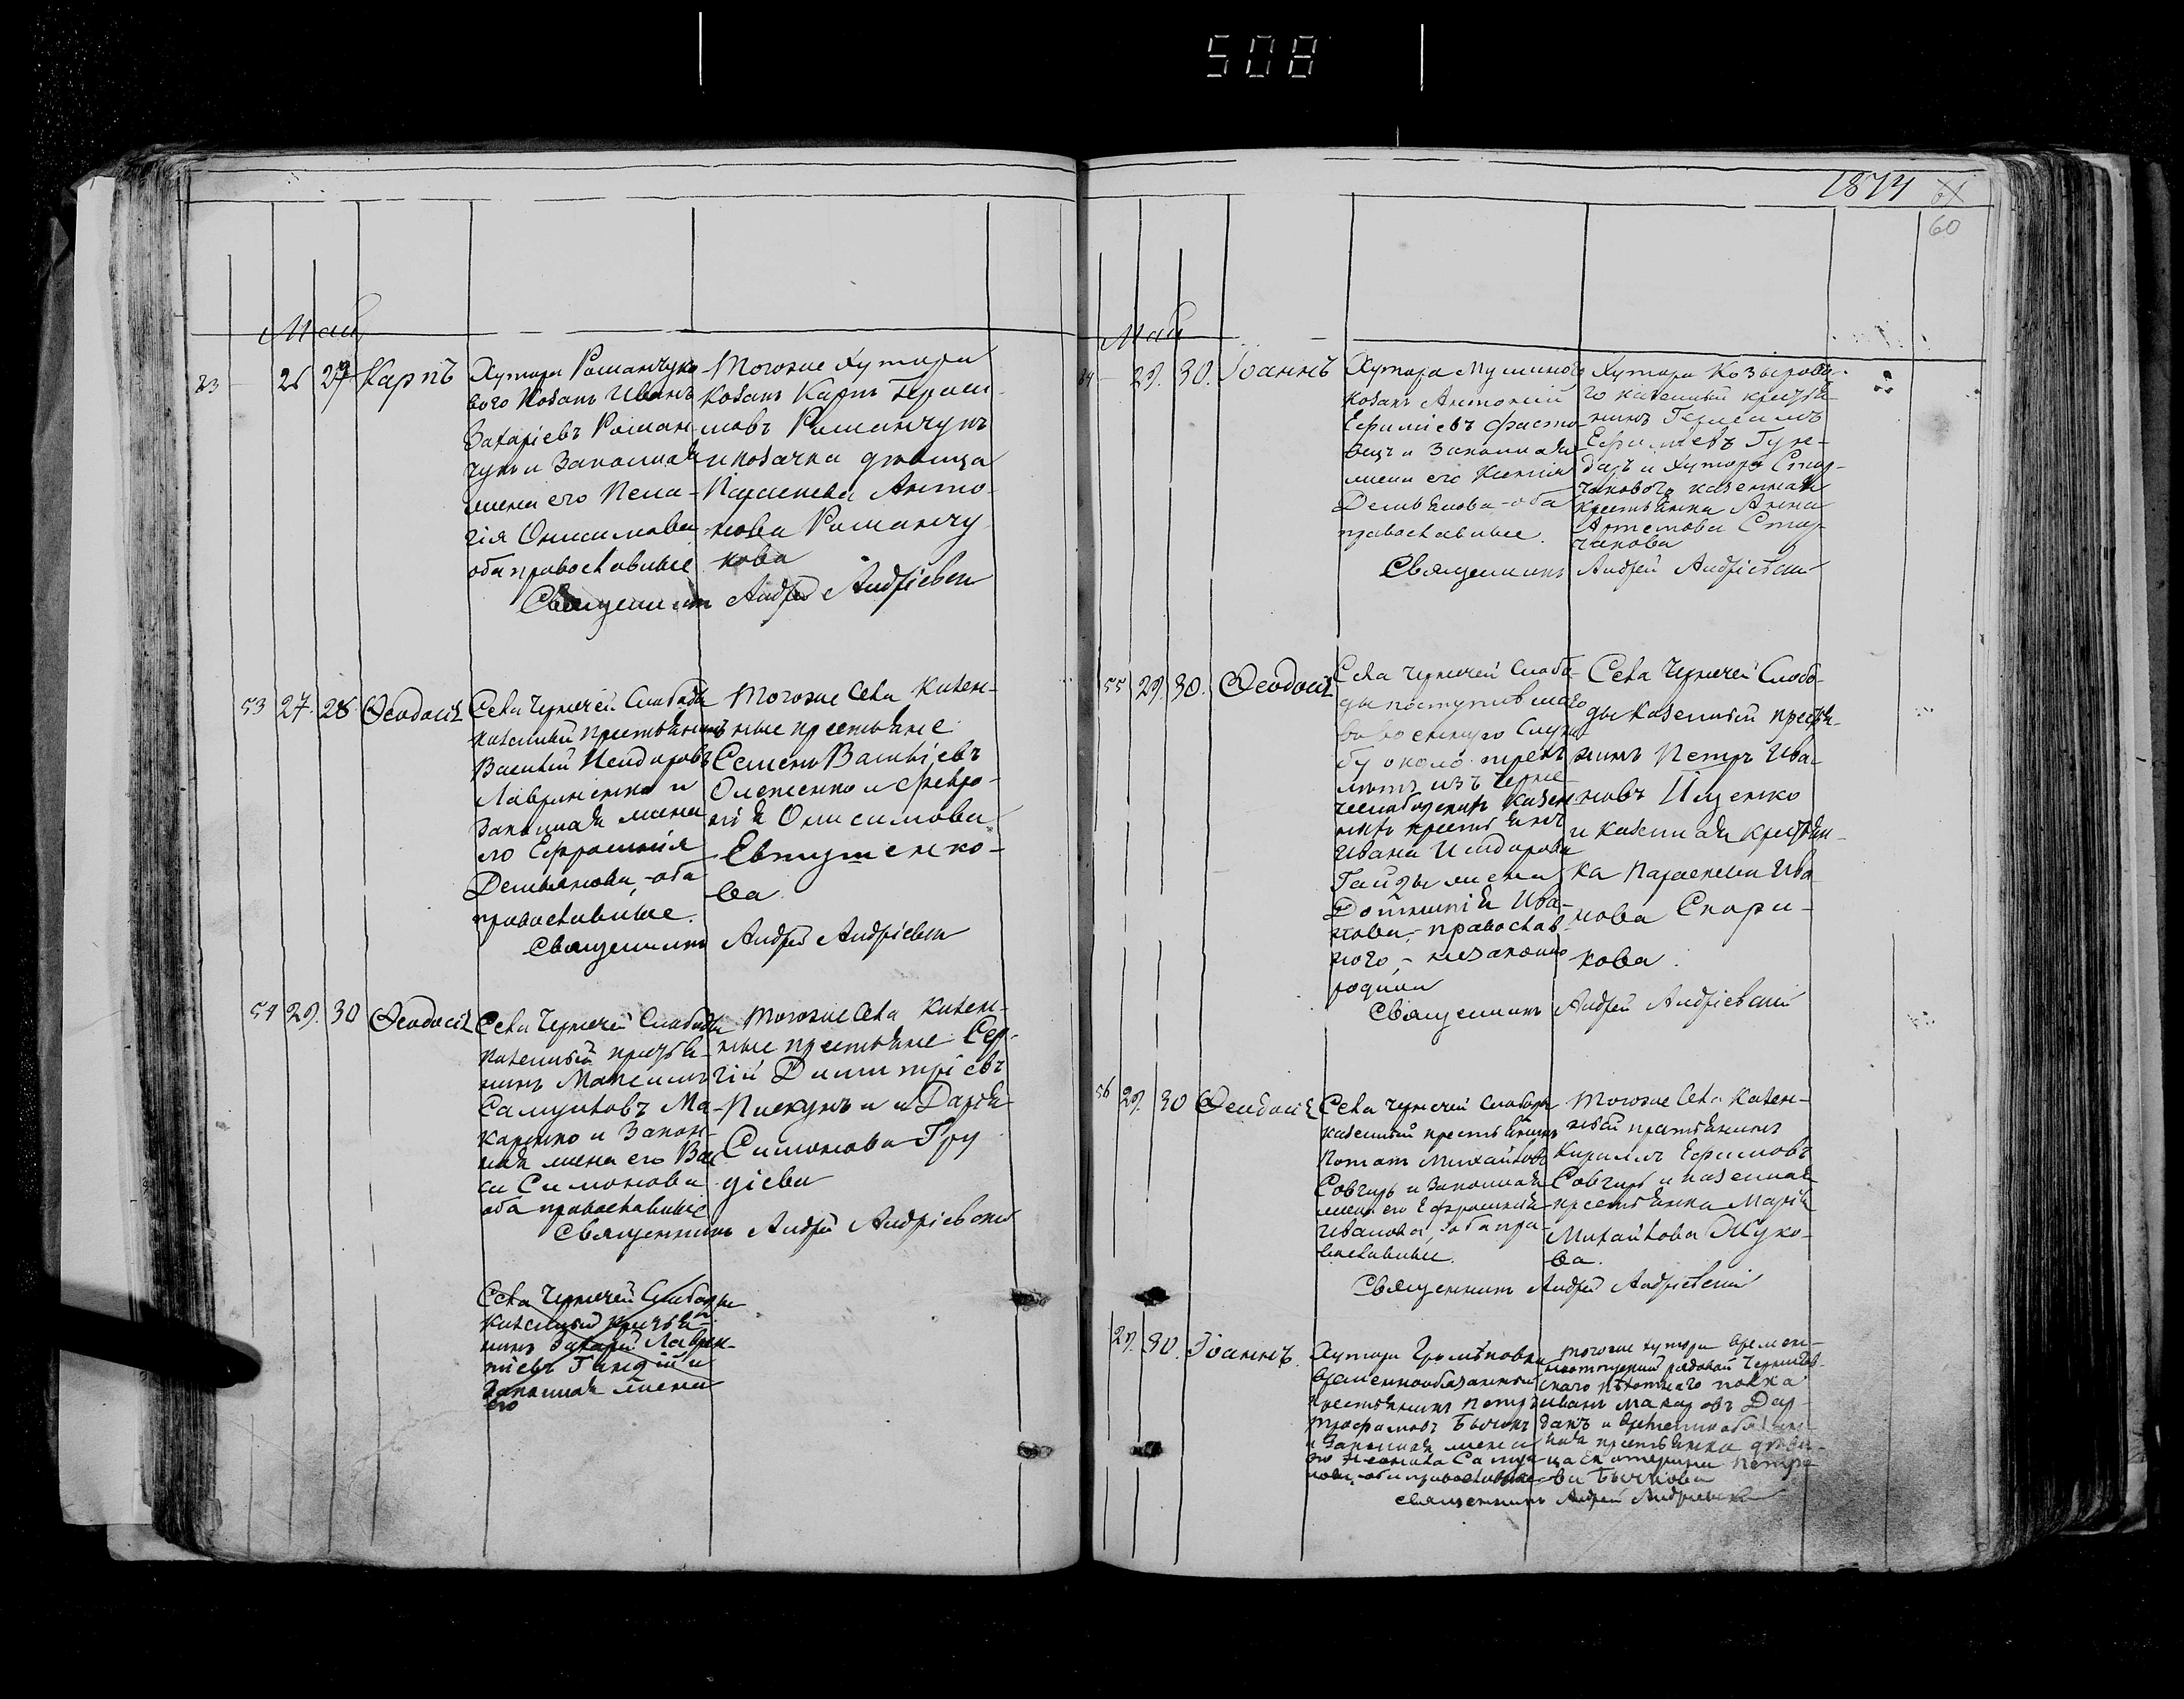 508
Май
23
26 27 Карпъ
Хутора Романчуко
вого Козакъ Иванъ
Захаріевъ Роман-
чукъ и Законная
жена его Пела-
гія Онисимова
оба православные
Тогоже Хутора
Козакъ Карпъ Гераси-
мовъ Романчукъ
и козачка девица
Параскева Анто-
нова Романчу
кова
Священникъ Андрей Андріевск
53 27. 28 Ѳеодосія
Села Чернечей Слободы
казенный крестьянинъ
Василій Исидоровъ
Лавриненко и
Законная жена
его Ефросинія
Демьянова, оба
православные.
Тогоже Села Казен-
ные крестьяне
Семенъ Василіевъ
Олеженко и Февро-
нія Онисимова
Евтушенко-
ва
Священникъ Андрей Андріевск
54 29. 30 Ѳеодосія
Села Чернечей Слободы
казенный крестья-
нинъ Максимъ
Самуиловъ Ма-
каренко и Закон-
ная жена его Ва
са Симонова
оба православные
Тогоже Села Казен-
ные крестьяне Сер-
гій Димитріевъ
Пискунъ и Дарія
Симонова Гру
діева
Священникъ Андрей Андріевскій
Села Чернечей Слободы
казенный крестья-
нинъ Захарій Лаврен-
тіевъ и
Законная жена
его
1874
61
60
Май
24 29. 30. Іоаннъ
Хутора
Козакъ Антоній
Ефиміевъ Фасто
вецъ и Законная
жена его Ксенія
Демьянова оба
православные.
Хутора Козырова-
го казенный крестья
нинъ Герасимъ
Ефиміевъ Гун-
дарь и Хутора Стор-
чакового казенная
крестьянка Анна
Артемова Стор
чакова
Священникъ Андрей Андріевскій
55 29. 30. Ѳеодосія
Села Чернечей Слобо-
ды поступившаго
въ военную служ
бу около трехъ
летъ изъ черне
чеслободскихъ Казен
ныхъ крестьянъ
Ивана Исидорова
Гайды жена
Домникія Ива-
нова, православ-
ного, незаконно
родила
Села Чернечей Слобо-
ды Казенный крестья-
нинъ Петръ Ива-
новъ Ищенко
и казенная крестьян-
ка Параскева Ива-
нова Скори-
кова.
Священникъ Андрей Андріевскій
56 29. 30 Ѳеодосія
Села Чернечей Слободы
казенный крестьянинъ
Потапъ Михайловъ
Совгирь и Законная
жена его Ефросинія
Иванова, оба пра-
вославные.
Тогоже Села Казен-
ный крестьянинъ
Кириллъ Ефимовъ
Совгирь и казенная
крестьянка Марія
Михайлова Жуко-
ва.
Священникъ Андрей Андріевскій
29. 30. Іоаннъ.
Хутора
временнообязанный
крестьянинъ Петръ
Трофимовъ Бычокъ
и Законная жена
его
оба православные
Тогоже хутора времен-
ноотпускный рядовой Чернигов-
скаго пехотнаго полка
Иванъ Макаровъ Дар-
ганъ и временнообязан
ная крестьянка деви-
ца Екатерина Петро
ва Бычкова
Священникъ Андрей Андріевскій